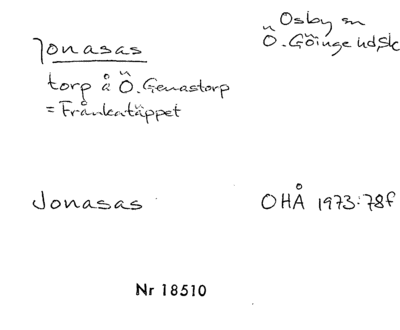 Jonasas
Osby sn
Ö. Göinge hd, Sk
torp å Ö. Genastorp
= Frånkatäppet
Jonasas
OHÅ 1973:78f
Nr 18510